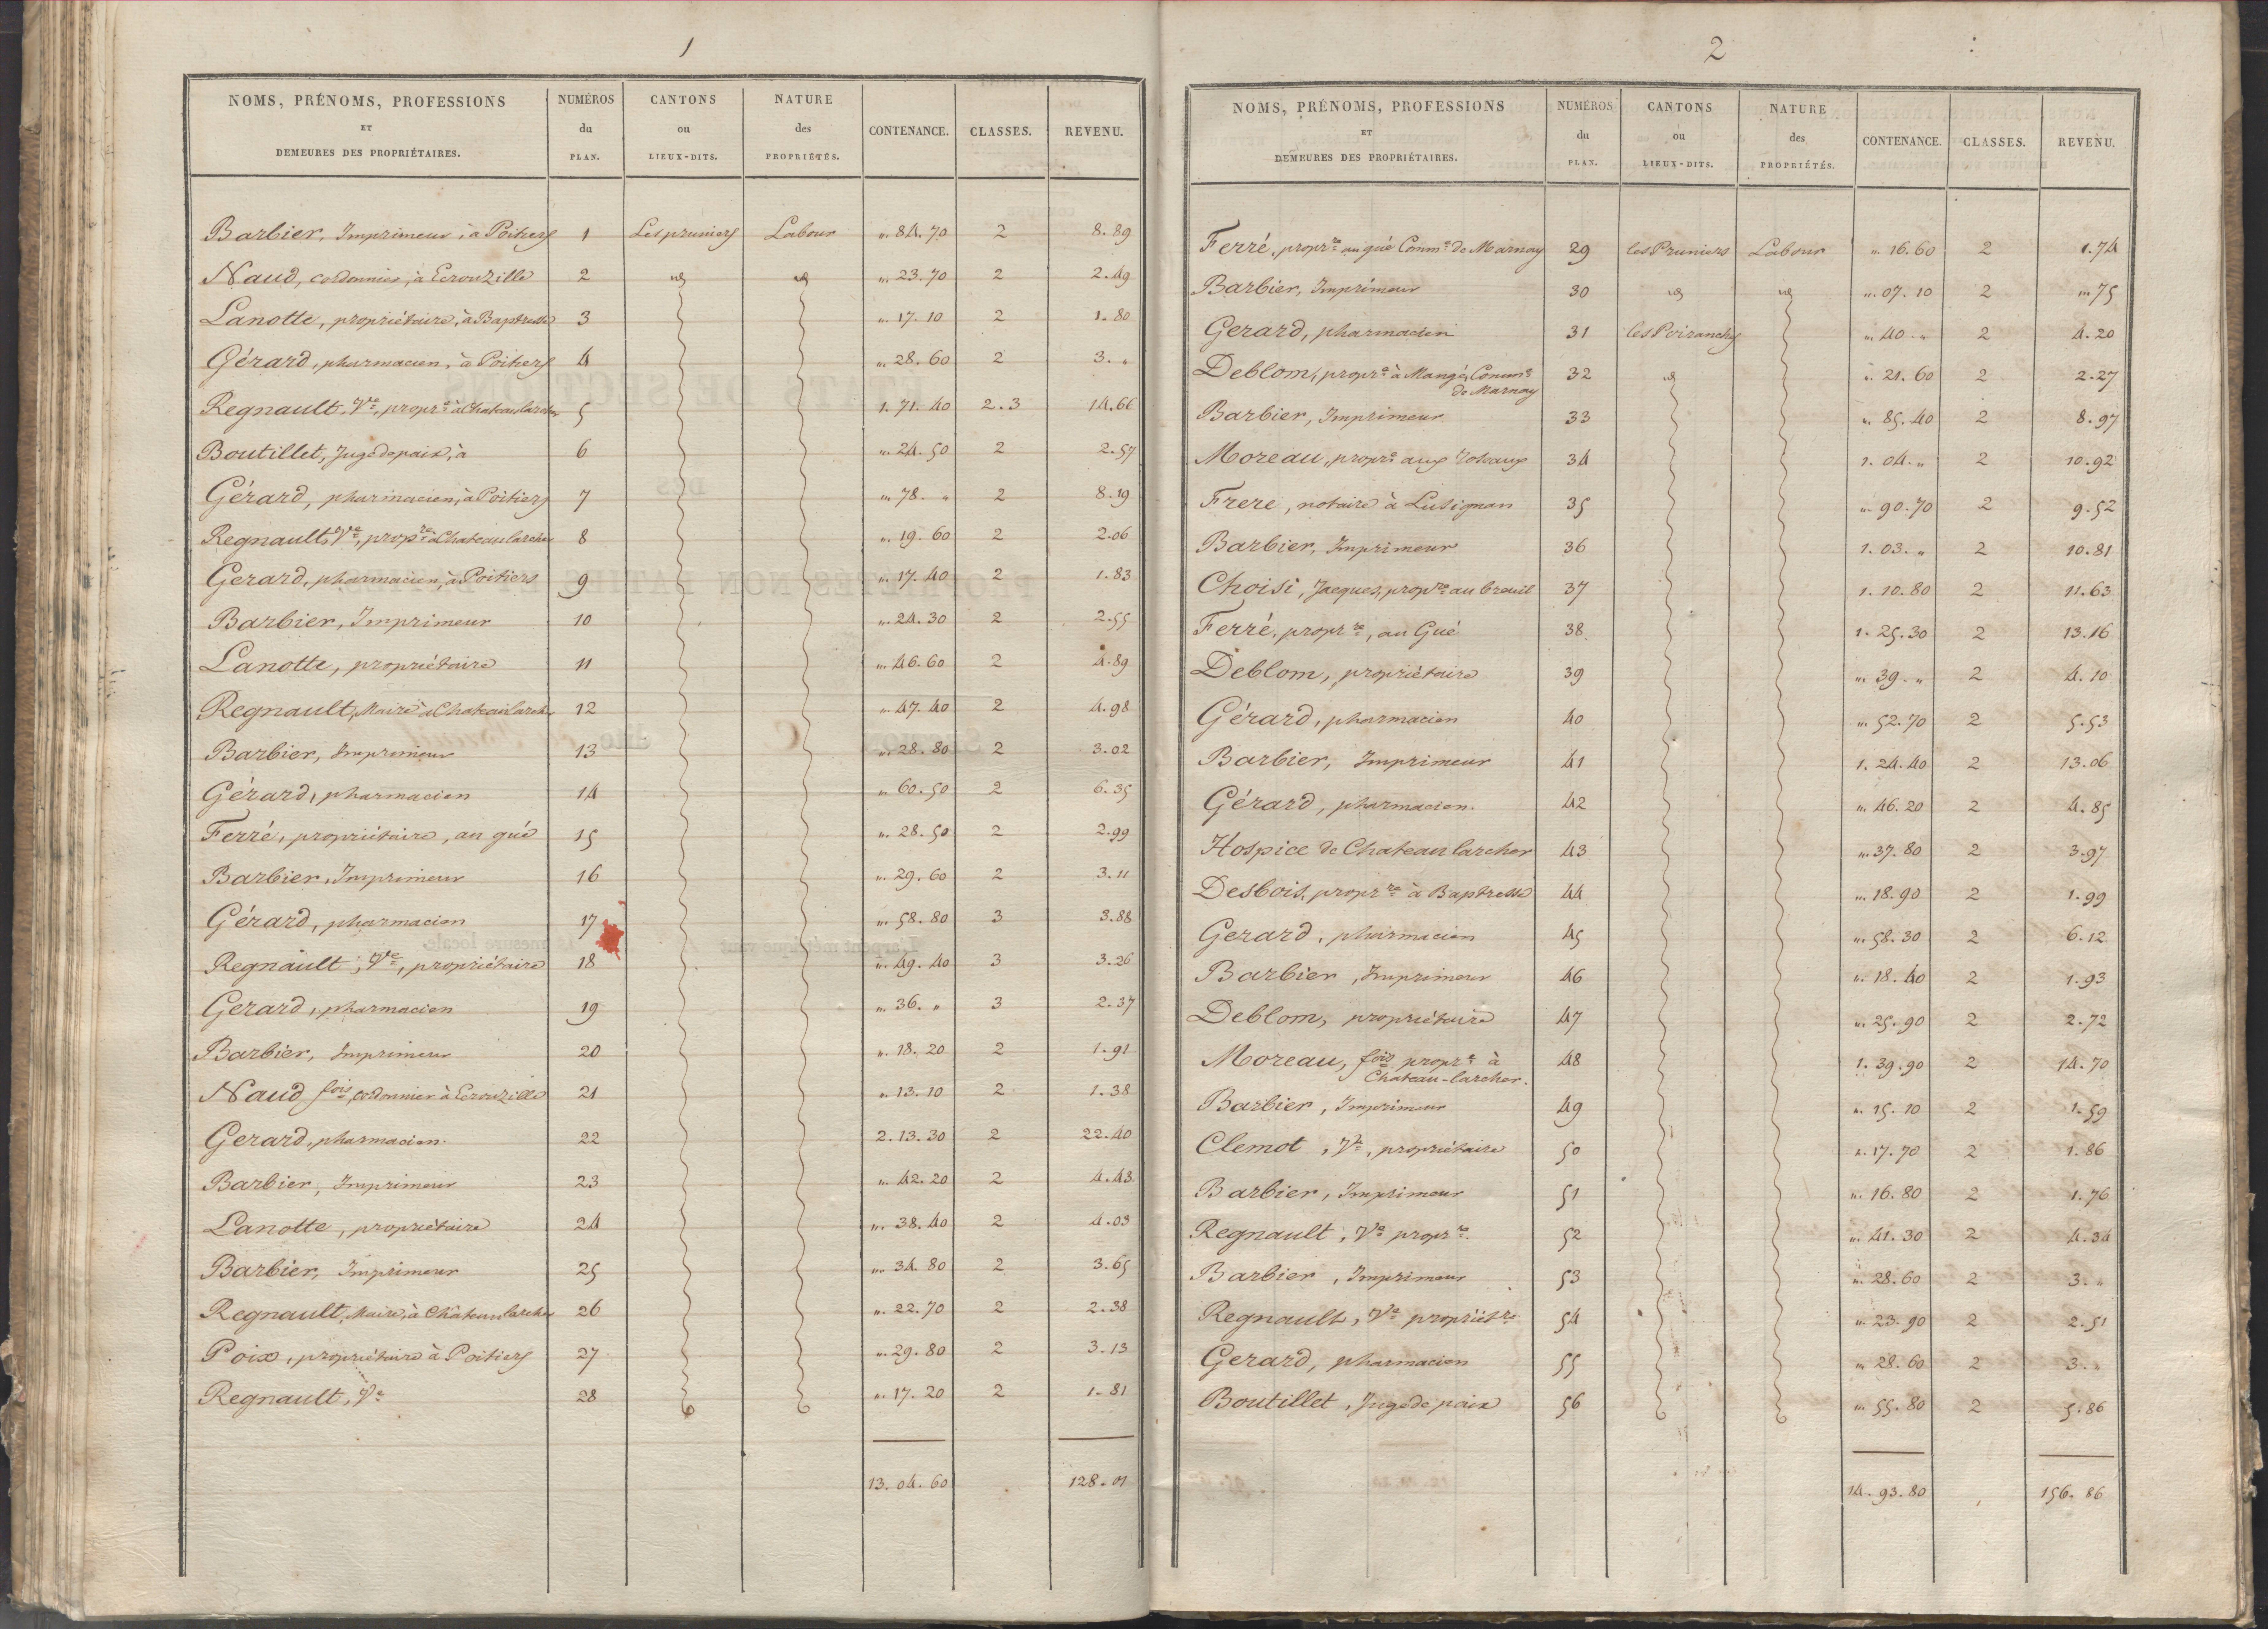 1
NOMS, PRÉNOMS, PROFESSIONS ET DEMEURES DES PROPRIÉTAIRES. NUMÉROS du PLAN. CANTONS ou LIEUX-DITS. NATURE des PROPRIÉTÉS. CONTENANCE. CLASSES. REVENU.
Barbier, Imprimeur, à Poitiers 1 Les pruniers Labour „. 84. 70 2 8. 89
Naud, cordonnier, à Ecrouzille 2 id id „. 23. 70 2 2. 49
Lanotte, propriétaire, à Baptresse 3 „. 17. 10 2 1. 80
Gérard, pharmacien, à Poitiers 4 „. 28. 60 2 3. „
Regnault, Ve, propre à Chateaularcher 5 1. 71. 40 2. 3 14. 66
Boutillet, Juge de paix, à 6 „. 24. 50 2 2. 57
Gérard, pharmacien, à Poitiers 7 „. 78. „ 2 8. 19
Regnault, Ve, propre à Chateaularcher 8 „. 19. 60 2 2. 06
Gerard, pharmacien, à Poitiers 9 „. 17. 40 2 1. 83
Barbier, Imprimeur 10 „. 24. 30 2 2. 55
Lanotte, propriétaire 11 „. 46. 60 2 4. 89
Regnault, Maire à Chateaularcher 12 „. 47. 40 2 4. 98
Barbier, Imprimeur 13 „. 28. 80 2 3. 02
Gérard, pharmacien 14 „. 60. 50 2 6. 35
Ferré, propriétaire, au gué 15 „. 28. 50 2 2. 99
Barbier, Imprimeur 16 „. 29. 60 2 3. 11
Gérard, pharmacien 17 „. 58. 80 3 3. 88
Regnault, Ve, propriétaire 18 „. 49. 40 3 3. 26
Gerard, pharmacien 19 „. 36. „ 3 2. 37
Barbier, Imprimeur 20 „. 18. 20 2 1. 91
Naud fois, cordonnier à Ecrouzille 21 „. 13. 10 2 1. 38
Gerard, pharmacien. 22 2. 13. 30 2 22. 40
Barbier, Imprimeur 23 „. 42. 20 2 4. 43
Lanotte, propriétaire 24 „. 38. 40 2 4. 03
Barbier, Imprimeur 25 „. 34. 80 2 3. 65
Regnault, Maire, à Châteaularcher 26 „. 22. 70 2 2. 38
Poix, propriétaire à Poitiers 27 „. 29. 80 2 3. 13
Regnault, Ve 28 „. 17. 20 2 1. 81
13. 04. 60 128. 01
2
NOMS, PRÉNOMS, PROFESSIONS ET DEMEURES DES PROPRIÉTAIRES. NUMÉROS du PLAN. CANTONS ou LIEUX-DITS. NATURE des PROPRIÉTÉS. CONTENANCE. CLASSES. REVENU.
Ferré, proprre au gué Comme de Marnay 29 les Pruniers Labour „. 16. 60 2 1. 74
Barbier, Imprimeur 30 id id „. 07. 10 2 „. 75
Gerard, pharmacien 31 les Poiranches „. 40. „ 2 4. 20
Deblom, propre à Mangé, Comme de Marnay 32 id „. 21. 60 2 2. 27
Barbier, Imprimeur 33 „. 85. 40 2 8. 97
Moreau, propre aux 34 1. 04. „ 2 10. 92
Frere, notaire à Lusignan 35 „. 90. 70 2 9. 52
Barbier, Imprimeur 36 1. 03. „ 2 10. 81
Choisi, Jacques, proprre au breuil 37 1. 10. 80 2 11. 63
Ferré, proprre, au Gué 38 1. 25. 30 2 13. 16
Deblom, propriétaire 39 „. 39. „ 2 4. 10
Gérard, pharmacien 40 „. 52. 70 2 5. 53
Barbier, Imprimeur 41 1. 24. 40 2 13. 06
Gérard, pharmacien. 42 „. 46. 20 2 4. 85
Hospice de Chateau larcher 43 „. 37. 80 2 3. 97
Desbois, proprre à Baptresse 44 „. 18. 90 2 1. 99
Gerard, pharmacien 45 „. 58. 30 2 6. 12
Barbier, Imprimeur 46 „. 18. 40 2 1. 93
Deblom, propriétaire 47 „. 25. 90 2 2. 72
Moreau, fois propre à Chateau-larcher. 48 1. 39. 90 2 14. 70
Barbier, Imprimeur 49 „. 15. 10 2 1. 59
Clemot, Ve, propriétaire 50 „. 17. 70 2 1. 86
Barbier, Imprimeur 51 „. 16. 80 2 1. 76
Regnault, Ve proprre 52 „. 41. 30 2 4. 34
Barbier, Imprimeur 53 „. 28. 60 2 3. „
Regnault, Ve propriétre 54 „. 23. 90 2 2. 51
Gerard, pharmacien 55 „. 28. 60 2 3. „
Boutillet, Juge de paix 56 „. 55. 80 2 5. 86
14. 93. 80 156. 86